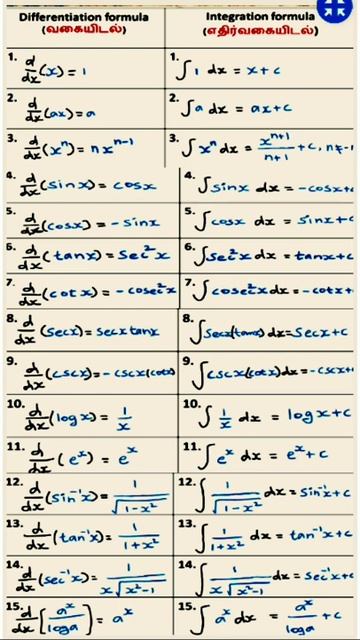 Differentiation formula Integration formula
(வகையிடல்) (எதிர்வகையிடல்)
1. d/dx(x) = 1 1. ∫1 dx = x+c
2. d/dx(ax) = a 2. ∫a dx = ax+c
3. d/dx(xⁿ) = nxⁿ⁻¹ 3. ∫xⁿ dx = xⁿ⁺¹/n+1 + c, n≠-1
4. d/dx(sinx) = cosx 4. ∫sinx dx = -cosx+
5. d/dx(cosx) = -sinx 5. ∫cosx dx = sinx+c
6. d/dx(tanx) = sec²x 6. ∫sec²x dx = tanx+c
7. d/dx(cotx) = -cosec²x 7. ∫cosec²x dx = -cotx+
8. d/dx(secx) = secx tanx 8. ∫secx(tanx) dx = secx+c
9. d/dx(cscx) = -cscx(cotx) 9. ∫cscx(cotx) dx = -cscx+
10. d/dx(logx) = 1/x 10. ∫1/x dx = logx+c
11. d/dx(eˣ) = eˣ 11. ∫eˣ dx = eˣ+c
12. d/dx(sin⁻¹x) = 1/√1-x² 12. ∫1/√1-x² dx = sin⁻¹x+c
13. d/dx(tan⁻¹x) = 1/1+x² 13. ∫1/1+x² dx = tan⁻¹x+c
14. d/dx(sec⁻¹x) = 1/x√x²-1 14. ∫1/x√x²-1 dx = sec⁻¹x+c
15. d/dx[aˣ/loga] = aˣ 15. ∫aˣ dx = aˣ/loga + c